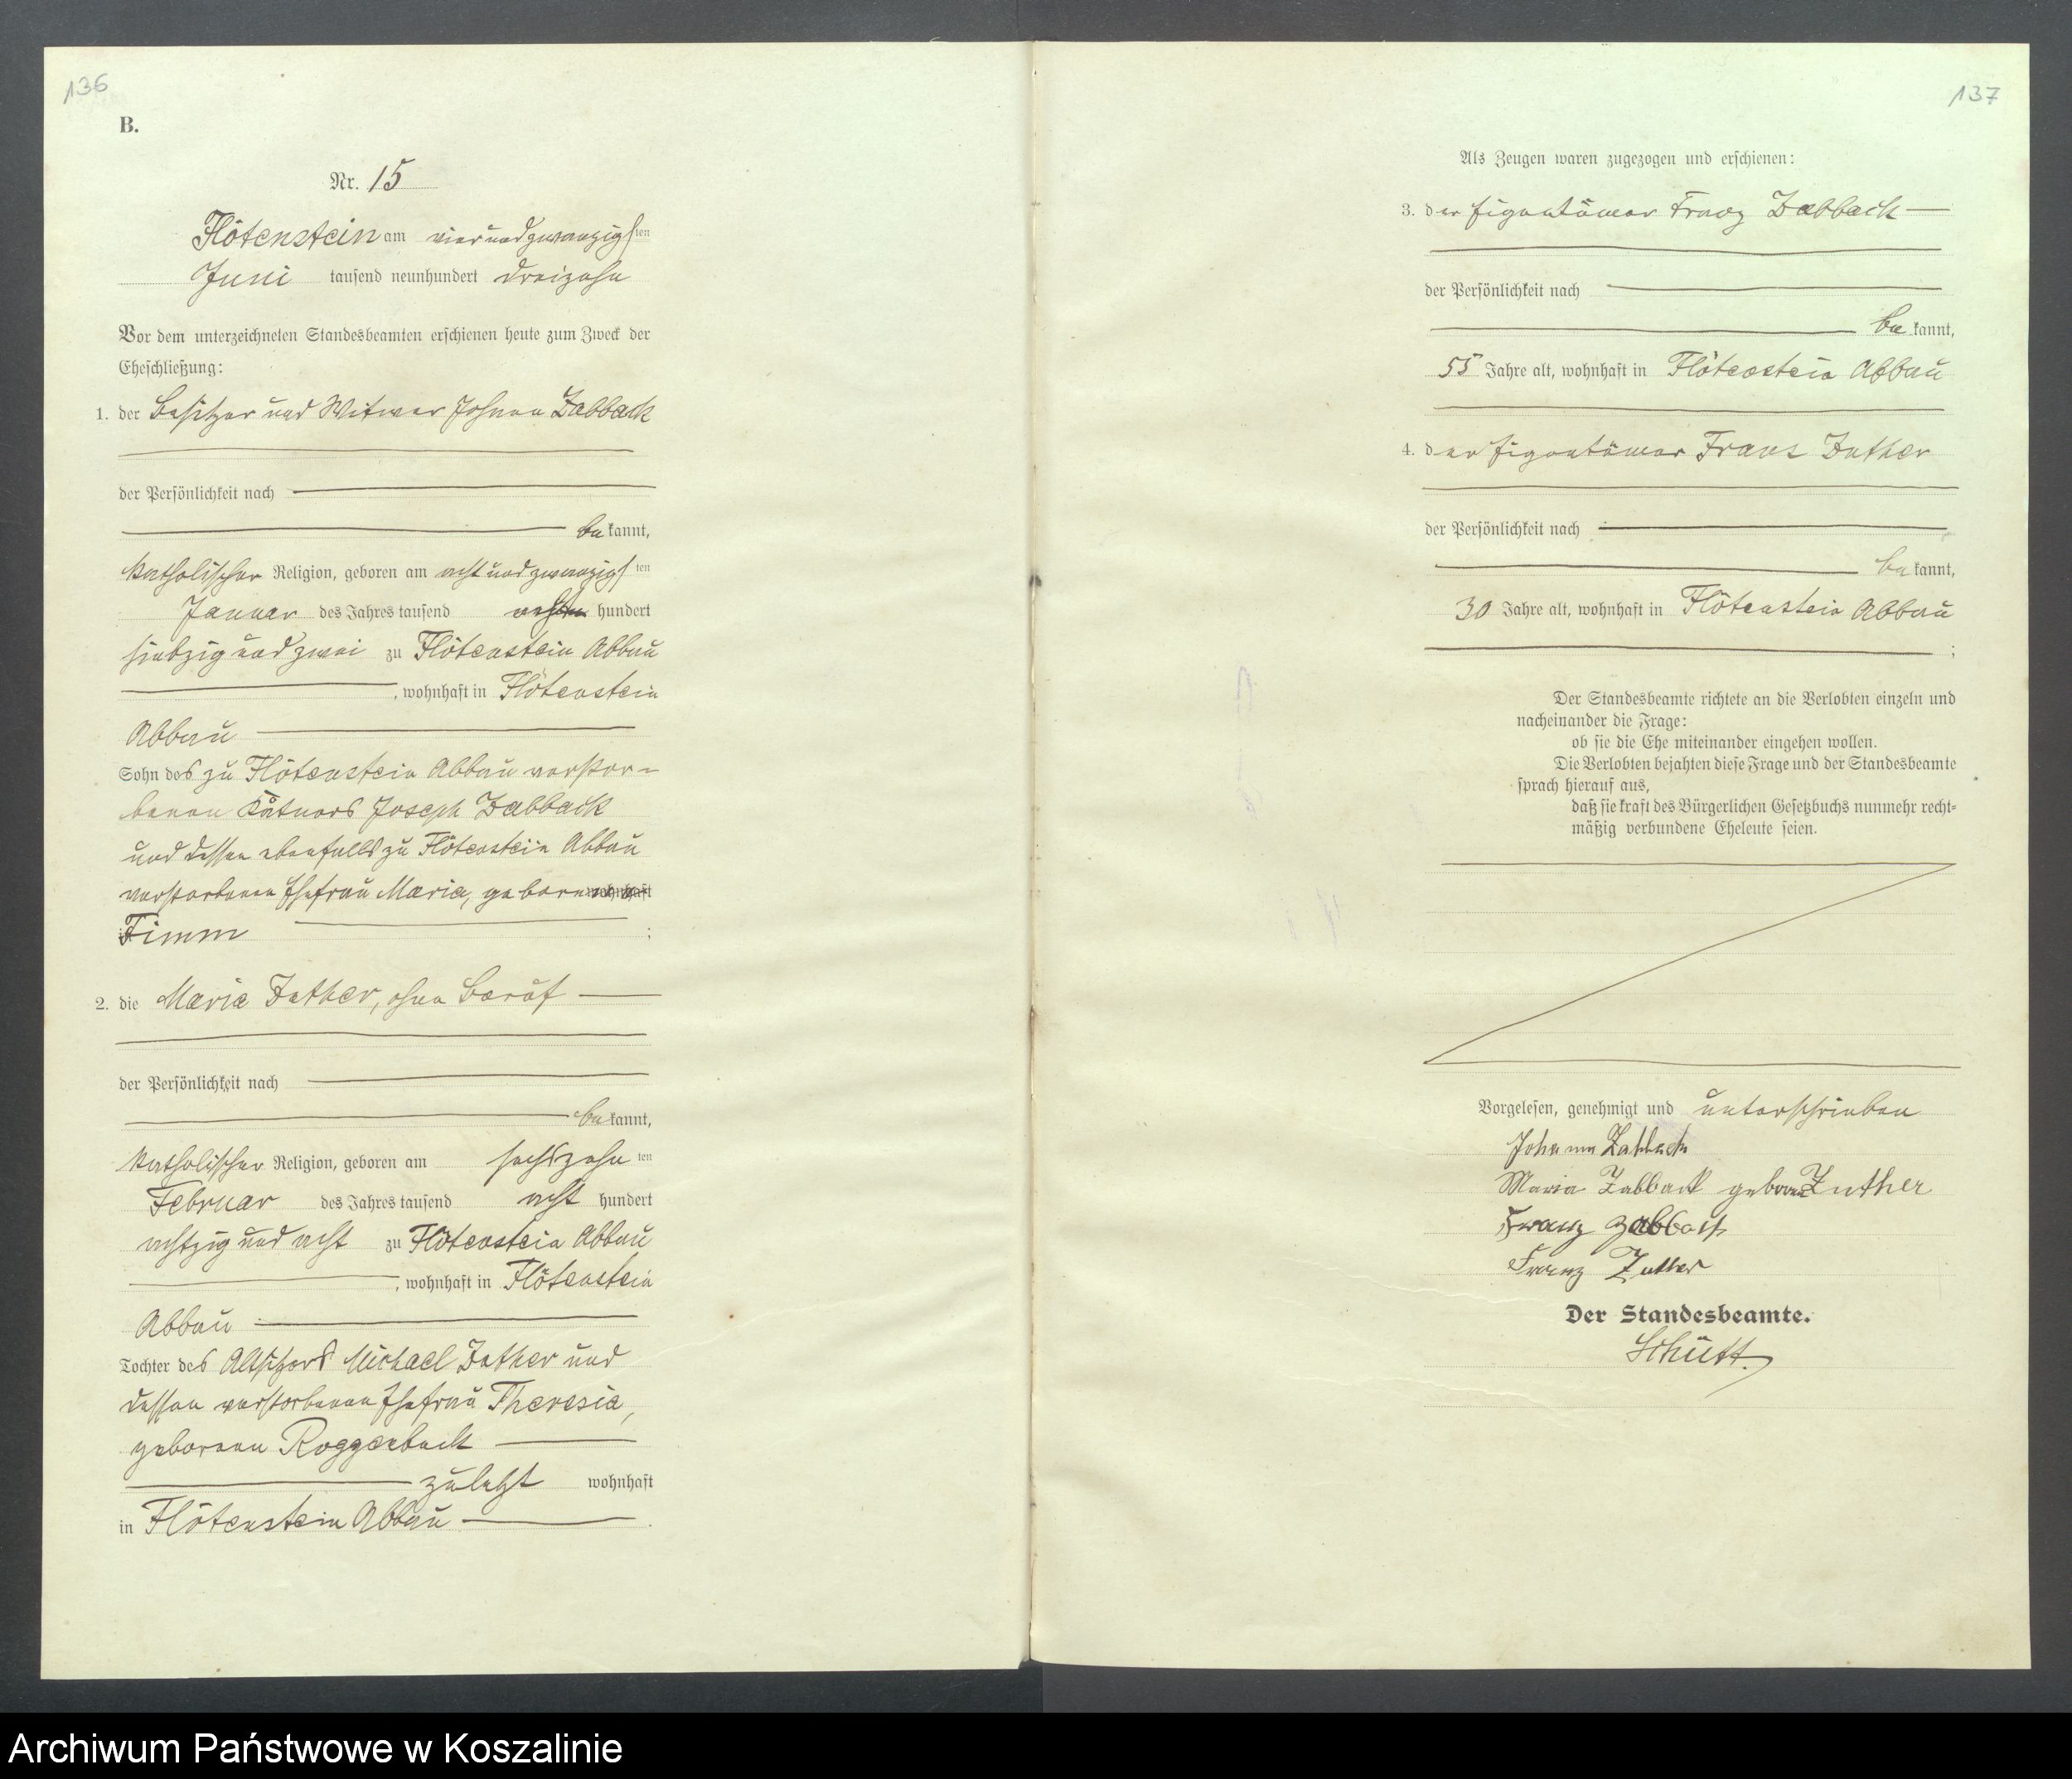 136
B.
Nr. 15
Flötenstein am vierundzwanzigsten
Juni tausend neunhundert dreizehn
Vor dem unterzeichneten Standesbeamten erschienen heute zum Zweck der
Eheschließung:
1. der Besitzer und Witwer Johann Zabback
der Persönlichkeit nach
be kannt,
katholischer Religion, geboren am achtundzwanzigsten
Januar des Jahres tausend acht hundert
siebzig und zwei zu Flötenstein Abbau
, wohnhaft in Flötenstein
Abbau
Sohn des zu Flötenstein Abbau verstor-
benen Kätners Joseph Zabback
und dessen ebenfalls zu Flötenstein Abbau
verstorbenen Ehefrau Maria, geborene wohnhaft
Timm ;
2. die Maria Zuther, ohne Beruf
der Persönlichkeit nach
be kannt,
katholischer Religion, geboren am sechszehn ten
Februar des Jahres tausend acht hundert
achtzig und acht zu Flötenstein Abbau
, wohnhaft in Flötenstein
Abbau
Tochter des Altsitzers Michael Zuther und
dessen verstorbenen Ehefrau Theresia,
geborenen Roggenbuck
zuletzt wohnhaft
in Flötenstein Abbau .
137
Als Zeugen waren zugezogen und erschienen:
3. der Eigentümer Franz Zabback
der Persönlichkeit nach
be kannt,
55 Jahre alt, wohnhaft in Flötenstein Abbau
4. der Eigentümer Franz Zuther
der Persönlichkeit nach
be kannt,
30 Jahre alt, wohnhaft in Flötenstein Abbau
;
Der Standesbeamte richtete an die Verlobten einzeln und
nacheinander die Frage:
ob sie die Ehe miteinander eingehen wollen.
Die Verlobten bejahten diese Frage und der Standesbeamte
sprach hierauf aus,
daß sie kraft des Bürgerlichen Gesetzbuchs nunmehr recht-
mäßig verbundene Eheleute seien.
Vorgelesen, genehmigt und unterschrieben
Johann Zabback
Maria Zabback geboren Zuther
Franz Zabback
Franz Zuther
Der Standesbeamte.
Schütt.
Archiwum Państwowe w Koszalinie